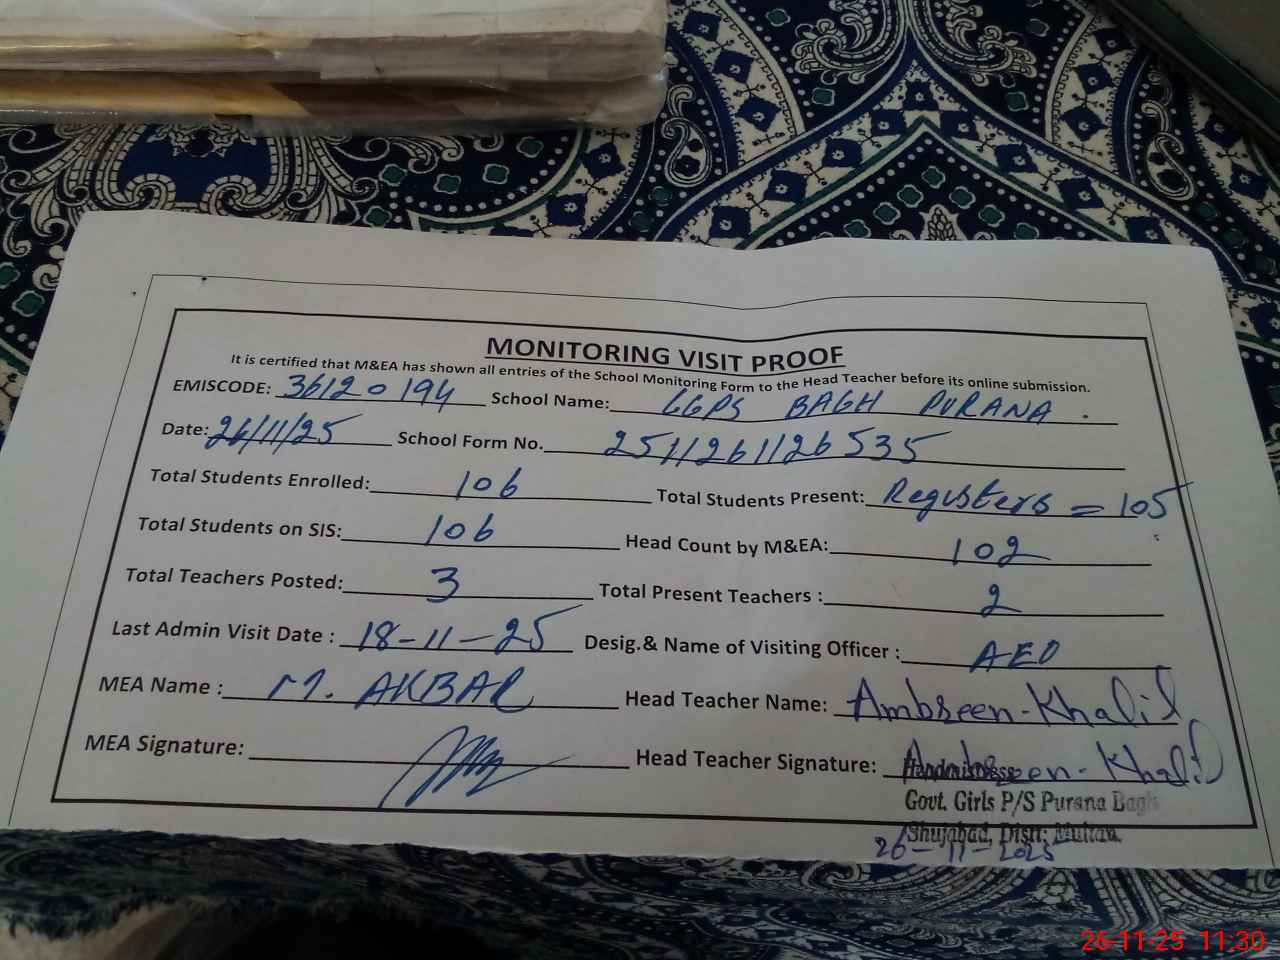 MONITORING VISIT PROOF
It is certified that M&EA has shown all entries of the School Monitoring Form to the Head Teacher before its online submission.
EMISCODE: 36120194 School Name: GGPS BAGH PURANA.
Date: 26/11/25 School Form No. 2511261126535
Total Students Enrolled: 106 Total Students Present: Registers = 105
Total Students on SIS: 106 Head Count by M&EA: 102
Total Teachers Posted: 3 Total Present Teachers : 2
Last Admin Visit Date : 18-11-25 Desig.& Name of Visiting Officer : AEO
MEA Name : M. AKBAR Head Teacher Name: Ambreen-Khalil
MEA Signature: Head Teacher Signature: Ambreen-Khalil
Headmistress
Govt. Girls P/S Purana Bagh
Shujabad, Distt: Multan.
26-11-2025
26-11-25 11:30